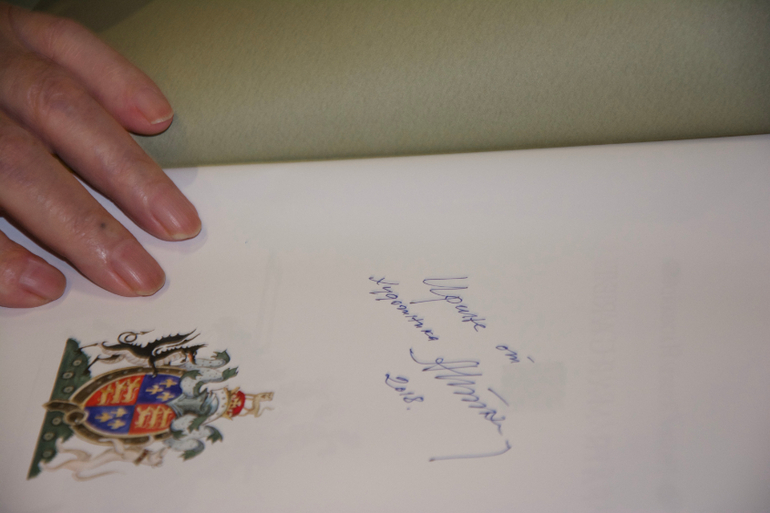 Ирине от
художника
2018.